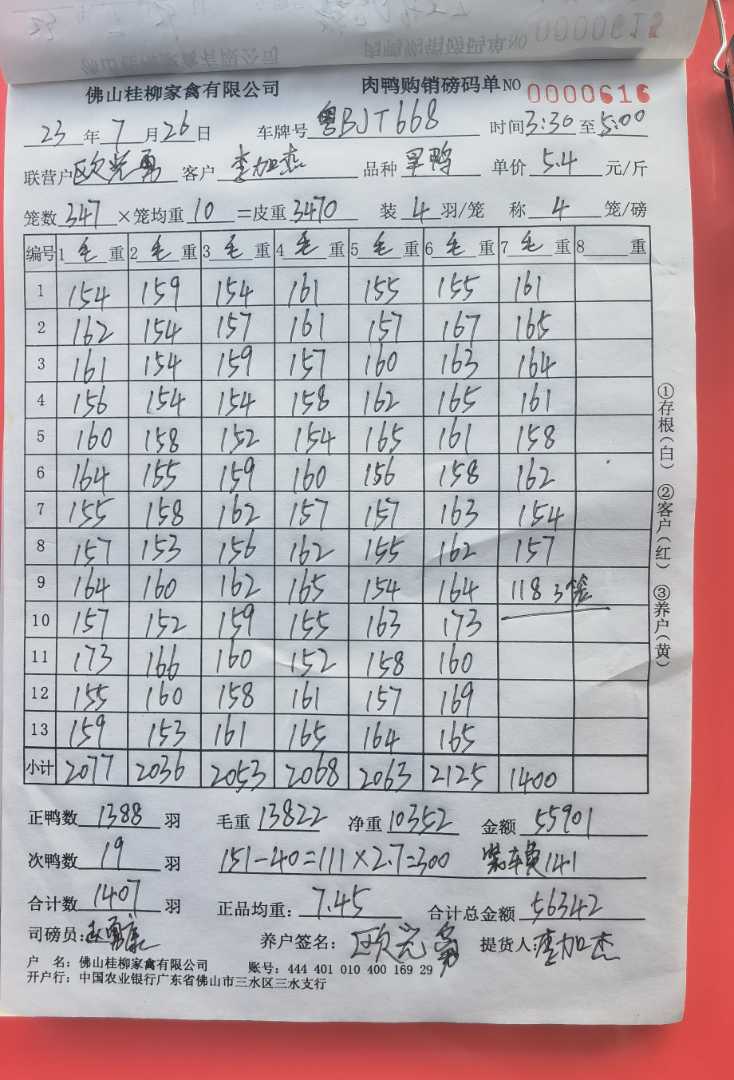 佛山桂柳家禽有限公司 肉鸭购销磅码单 NO 0000616
23年7月26日 车牌号 粤BJT668 时间3:30至5:00
联营户 欧光勇 客户 李加杰 品种 旱鸭 单价 5.4 元/斤
笼数 347 ×笼均重 10 =皮重 3470 装 4 羽/笼 称 4 笼/磅
编号 1毛重 2毛重 3毛重 4毛重 5毛重 6毛重 7毛重 8重
1 154 159 154 161 155 155 161
2 162 154 157 161 157 167 165
3 161 154 159 157 160 163 164
4 156 154 154 158 162 165 161
5 160 158 152 154 165 161 158
6 164 155 159 160 156 158 162
7 155 158 162 157 157 163 154
8 157 153 156 162 155 162 157
9 164 160 162 165 154 164 118 3个笼
10 157 152 159 155 163 173
11 173 166 160 152 158 160
12 155 160 158 161 157 169
13 159 153 161 165 164 165
小计 2077 2036 2053 2068 2063 2125 1400
正鸭数 1388 羽 毛重 13822 净重 10352 金额 55901
次鸭数 19 羽 151-40=111×2.7=300 装车费141
合计数 1407 羽 正品均重: 7.45 合计总金额 56342
司磅员: 养户签名: 欧光勇 提货人: 李加杰
户 名: 佛山桂柳家禽有限公司 账号: 444 401 010 400 169 29
开户行: 中国农业银行广东省佛山市三水区三水支行
①存根(白) ②客户(红) ③养户(黄)